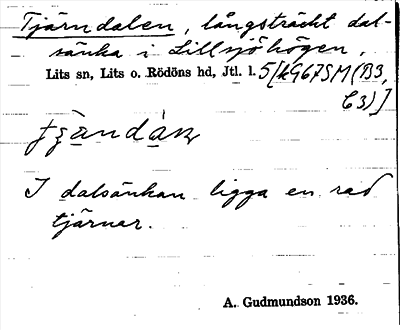 Tjärndalen, långsträckt dal-
sänka i Lillsjöhögen,
Lits sn, Lits o. Rödöns hd, Jtl. l. 5 [kG67SM (B3,
C3)]
I dalsänkan ligga en rad
tjärnar.
A. Gudmundson 1936.